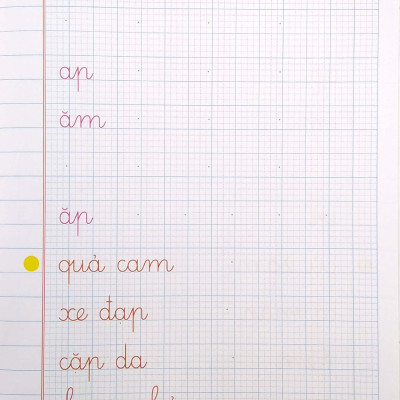 ap
ăm
ăp
quả cam
xe đạp
cặp da